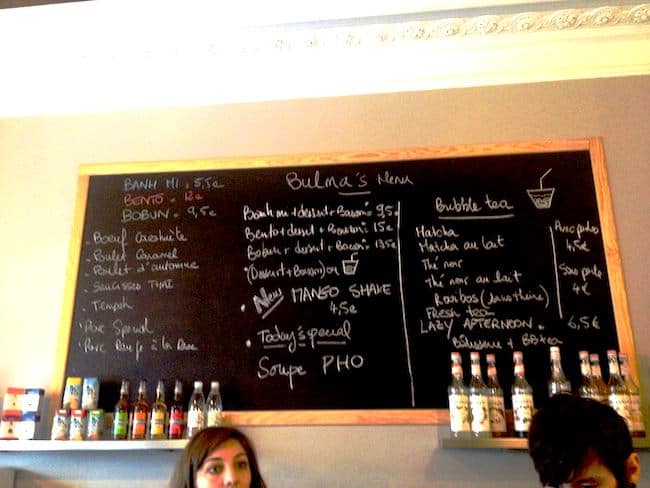 Bulma's Menu
BANH MI = 5,5€
BENTO = 12€
BOBUN = 9,5€
- Boeuf
- Poulet Caramel
- Poulet d'automne
- SAUCISSE THAÏ
- Tempeh
- Porc Special
- Porc
Banh mi + dessert + Boisson = 9,5€
Bento + dessert + Boisson = 15€
Bobun + dessert + Boisson = 13,5€
(Dessert + Boisson) ou
New MANGO SHAKE
4,5€
Today's special
Soupe PHO
Bubble tea
Matcha
Matcha au lait
Thé noir
Thé noir au lait
Rooibos (sans théine)
FRESH tea
LAZY AFTERNOON = 6,5€
+ BB tea
Avec perles
4,5€
Sans perle
4€